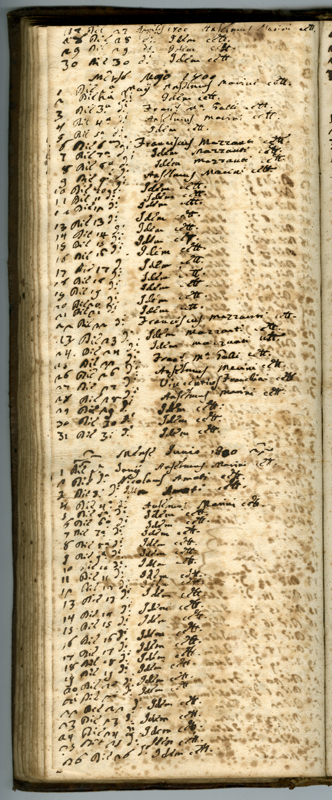 28 Die 28 d: Idem cett.
29 Die 29 d: Idem cett.
30 Die 30 d: Idem cett.
Anselmus Marini cett.
2 Die 2a d: Idem cett.
3 Die 3a d: Galli cett.
4 Die 4a d: Anselmus Marini cett.
5 Die 5a d: Idem cett.
6 Die 6a d: Franciscus Mazzanti cett.
7 Die 7a d: Idem Mazzanti cett.
8 Die 8a d: Idem Mazzanti cett.
9 Die 9a d: Anselmus Marini cett.
10 Die 10 d: Idem cett.
11 Die 11 d: Idem cett.
12 Die 12 d: Idem cett.
13 Die 13 d: Idem cett.
14 Die 14 d: Idem cett.
15 Die 15 d: Idem cett.
16 Die 16 d: Idem cett.
17 Die 17 d: Idem cett.
18 Die 18 d: Idem cett.
19 Die 19 d: Idem cett.
20 Die 20 d: Idem cett.
21 Die 21 d: Idem cett.
22 Die 22 d: Franciscus Mazzanti cett.
23 Die 23 d: Idem Mazzanti cett.
24 Die 24 d: Idem Mazzanti cett.
25 Die 25 d: Galli cett.
26 Die 26 d: Anselmus Marini cett.
27 Die 27 d: cett.
28 Die 28 d: Anselmus Marini cett.
29 Die 29 d: Idem cett.
30 Die 30 d: Idem cett.
31 Die 31 d: Idem cett.
Mensis Junio
1 Die Junij Anselmus Marini cett.
2 Die d: Nicolaus cett.
3 Die 3a d: Idem cett.
4 Die 4a d: Anselmus Marini cett.
5 Die 5a d: Idem cett.
6 Die 6a d: Idem cett.
7 Die 7a d: Idem cett.
8 Die 8a d: Idem cett.
9 Die 9a d: Idem cett.
10 Die 10 d: Idem cett.
11 Die 11 d: Idem cett.
12 Die 12 d: Idem cett.
13 Die 13 d: Idem cett.
14 Die 14 d: Idem cett.
15 Die 15 d: Idem cett.
16 Die 16 d: Idem cett.
17 Die 17 d: Idem cett.
18 Die 18 d: Idem cett.
19 Die 19 d: Idem cett.
20 Die 20 d: Idem cett.
21 Die 21 d: Idem cett.
22 Die 22 d: Idem cett.
23 Die 23 d: Idem cett.
24 Die 24 d: Idem cett.
25 Die 25 d: Idem cett.
26 Die 26 d: Idem cett.